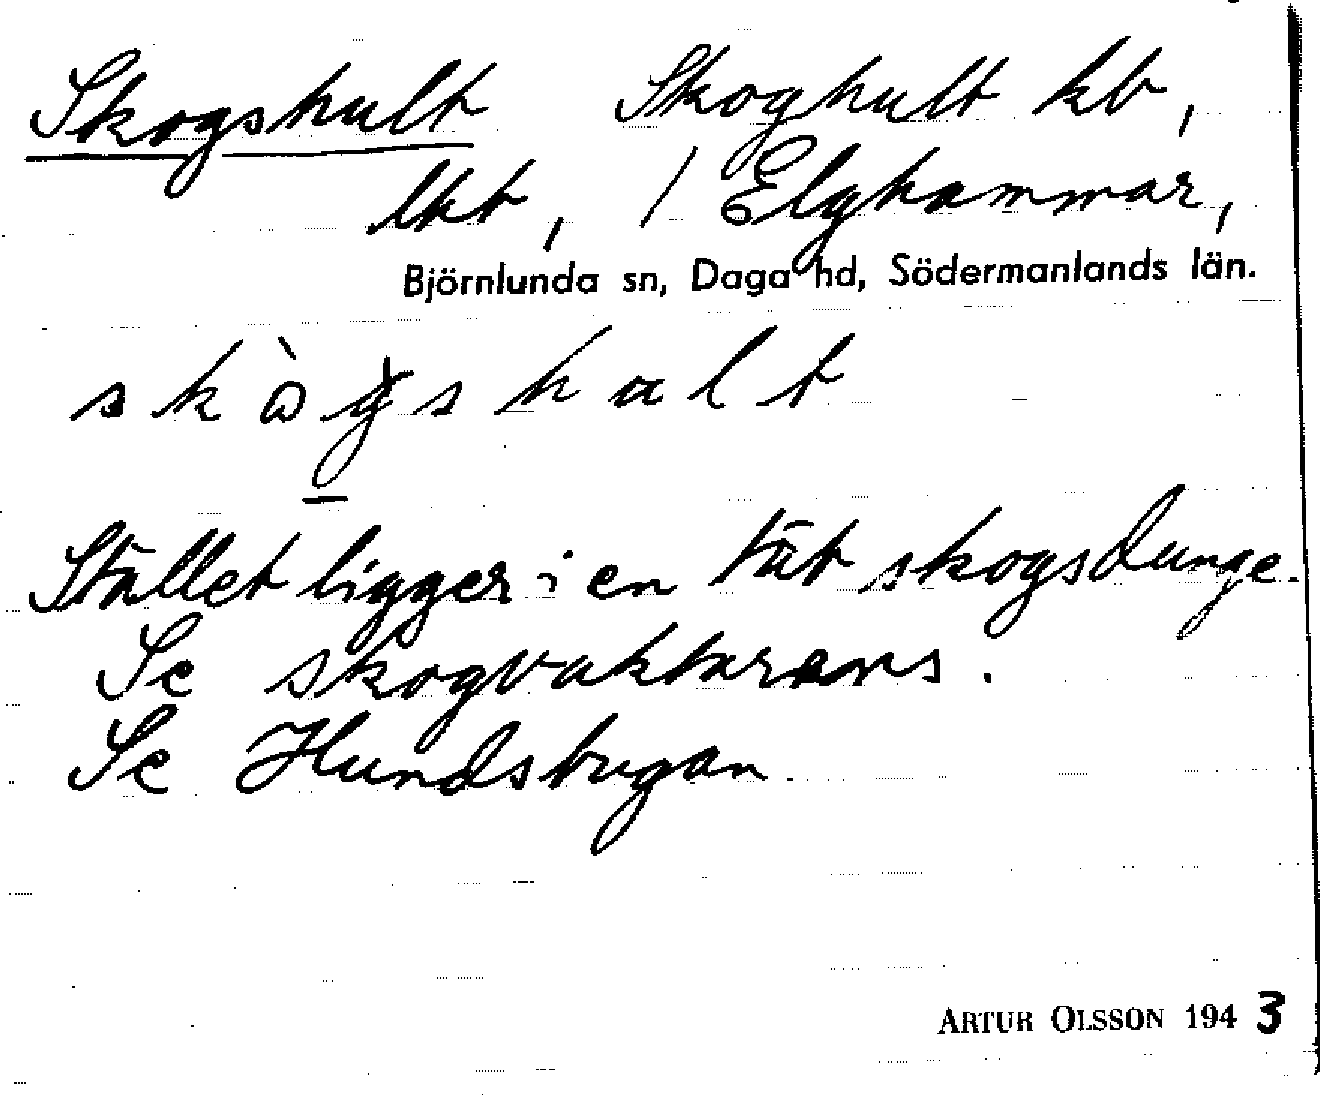 Skogshult Skoghult kb,
lht, / Elghammar,
Björnlunda sn, Daga hd, Södermanlands län.
skògshult
Stället ligger i en tät skogsdunge.
Se skogvaktarens.
Se Hundstugan
ARTUR OLSSON 1943